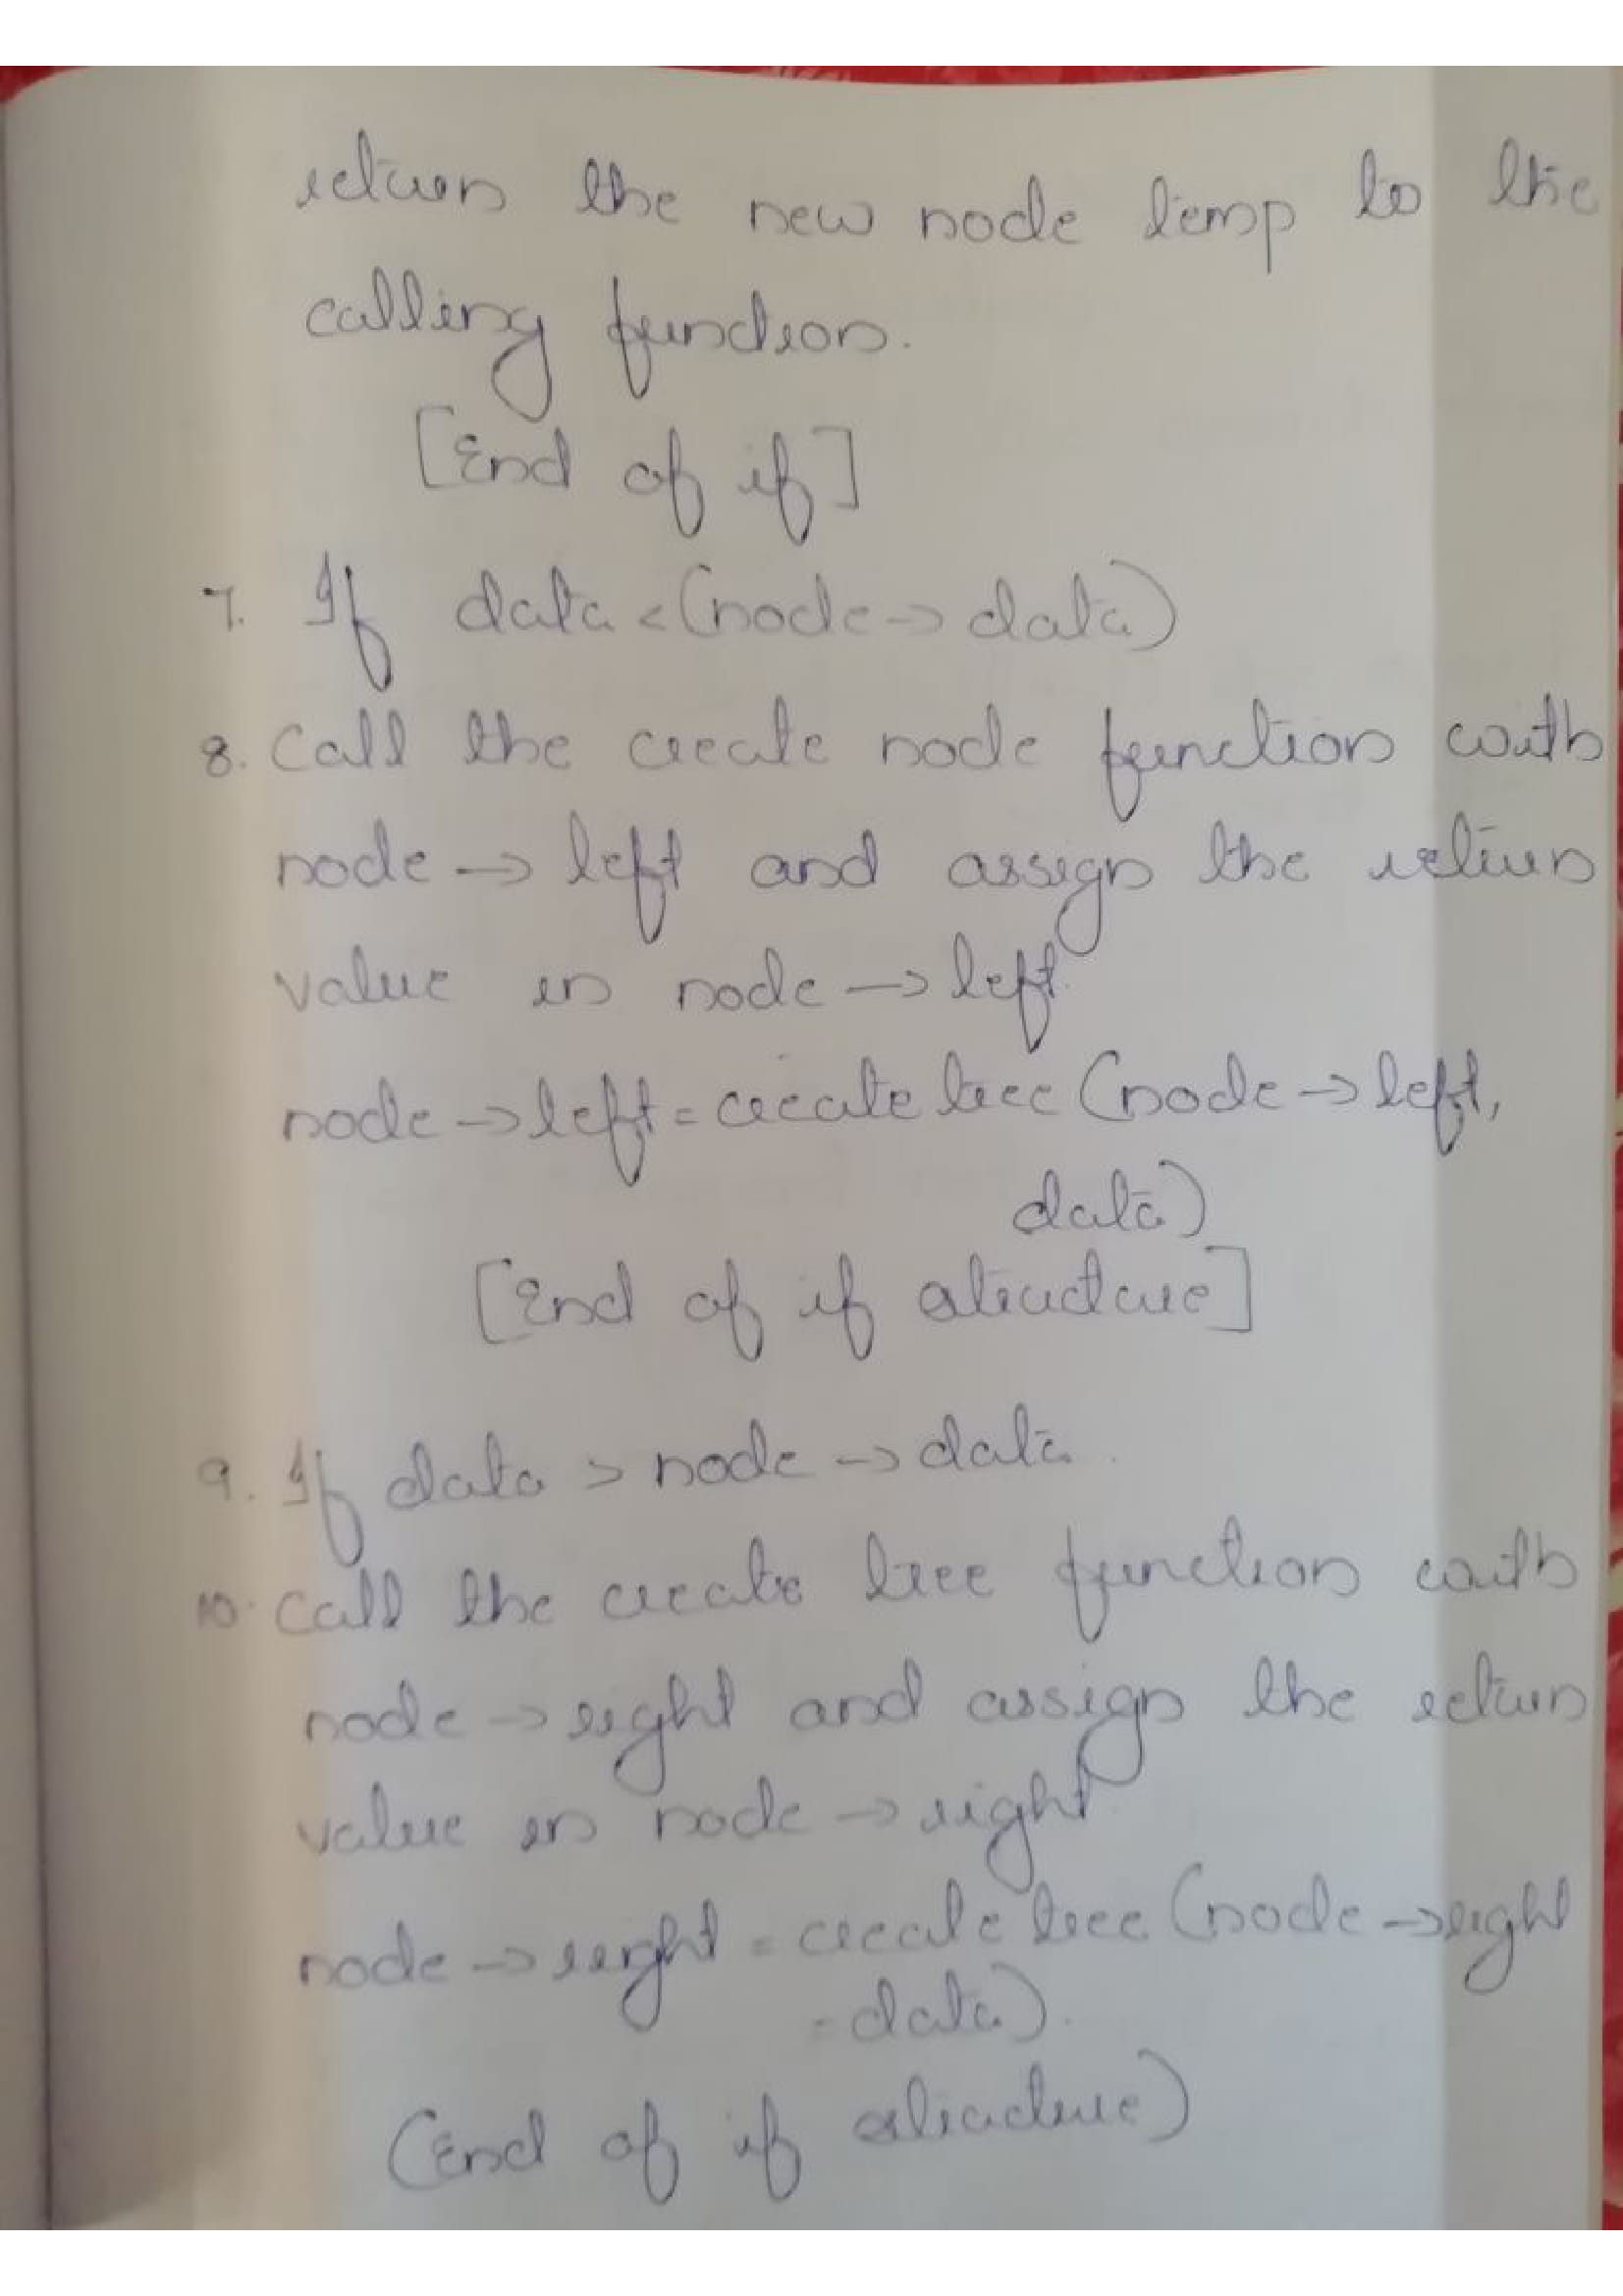 return the new node temp to the
calling function.
[End of if]
7. If data < (node → data)
8. Call the create node function with
node → left and assign the return
value in node → left.
node → left = create tree (node → left,
data)
[End of if structure]
9. If data > node → data.
10. Call the create tree function with
node → right and assign the return
value in node → right
node → right = create tree (node → right
= data).
(End of if structure)